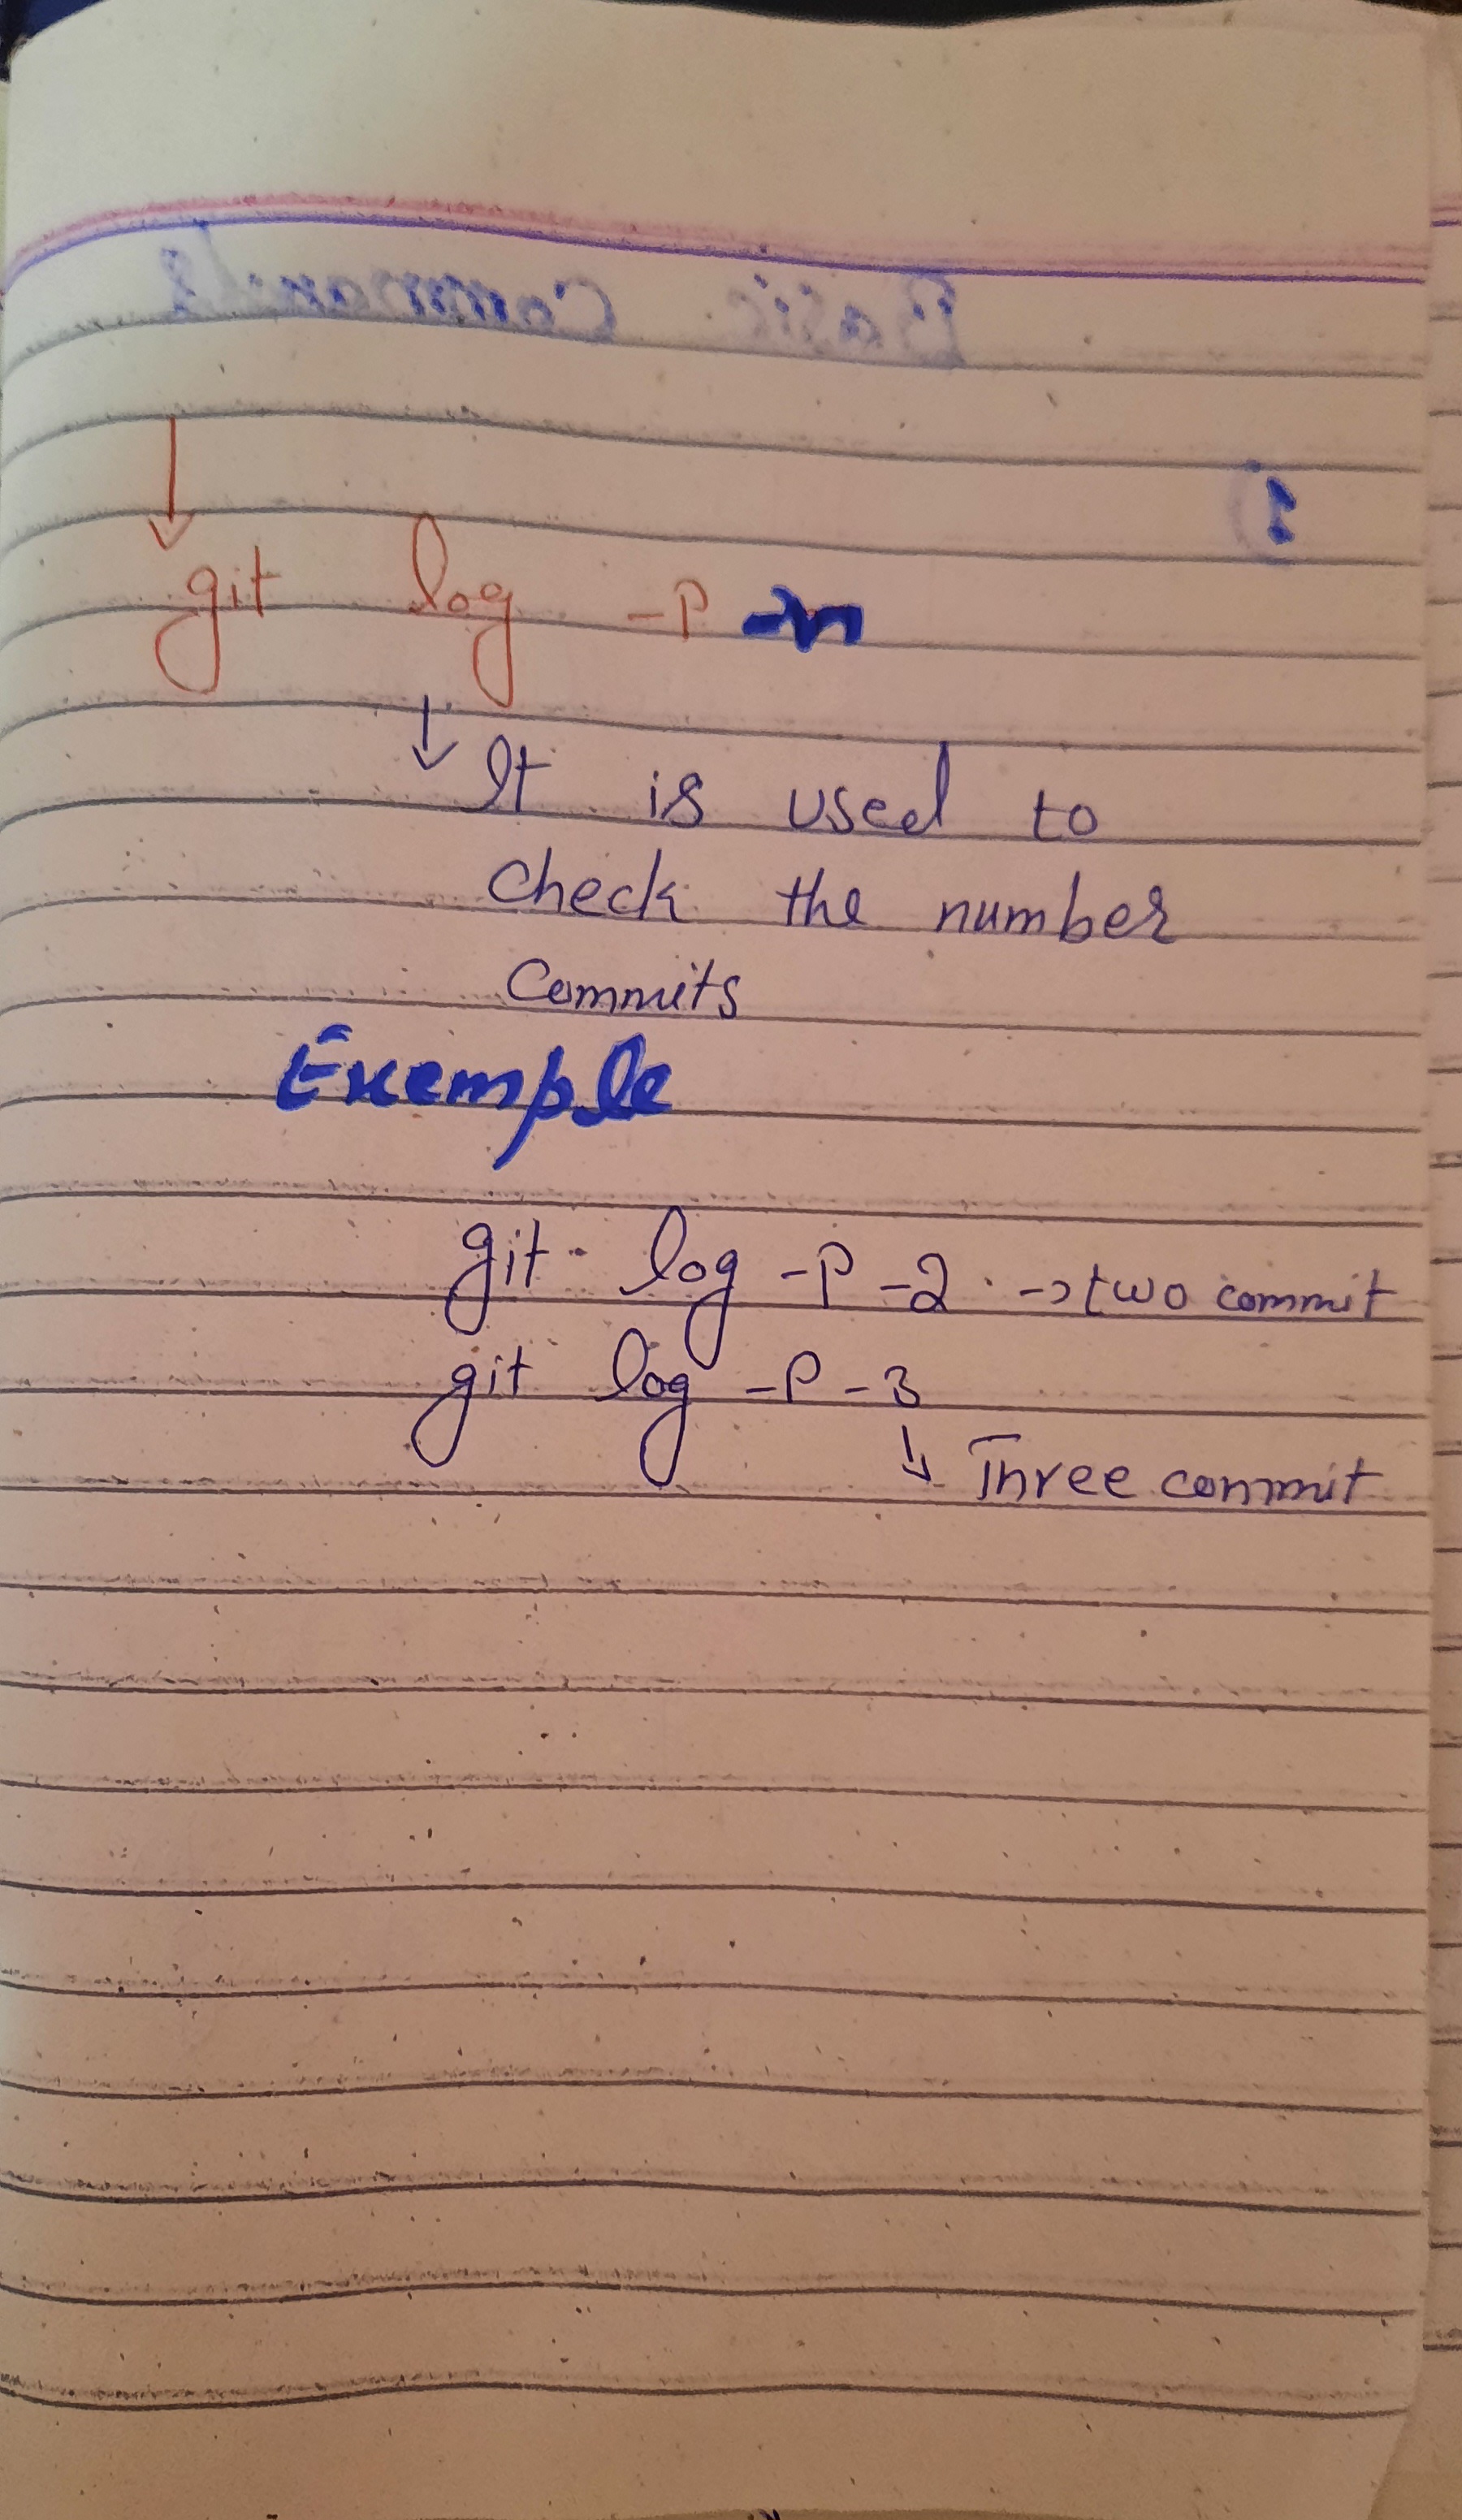 Basic Commands
1)
git log -p -n
It is used to
check the number
Commits
Exemple
git log -p -2 → two commit
git log -p -3
Three commit